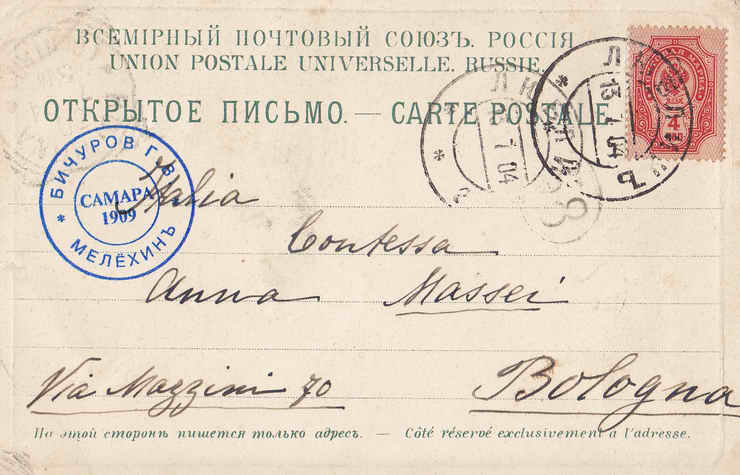 ВСЕМІРНЫЙ ПОЧТОВЫЙ СОЮЗЪ. РОССІЯ
UNION POSTALE UNIVERSELLE. RUSSIE.
ОТКРЫТОЕ ПИСЬМО. — CARTE POSTALE
БИЧУРОВ Г. В.
САМАРА
1909
МЕЛЁХИНЪ
13 7 04
7 04
4
3
Italia
Contessa
Anna Massei
Via Mazzini 70
Bologna
На этой сторонѣ пишется только адресъ. — Côté réservé exclusivement à l'adresse.